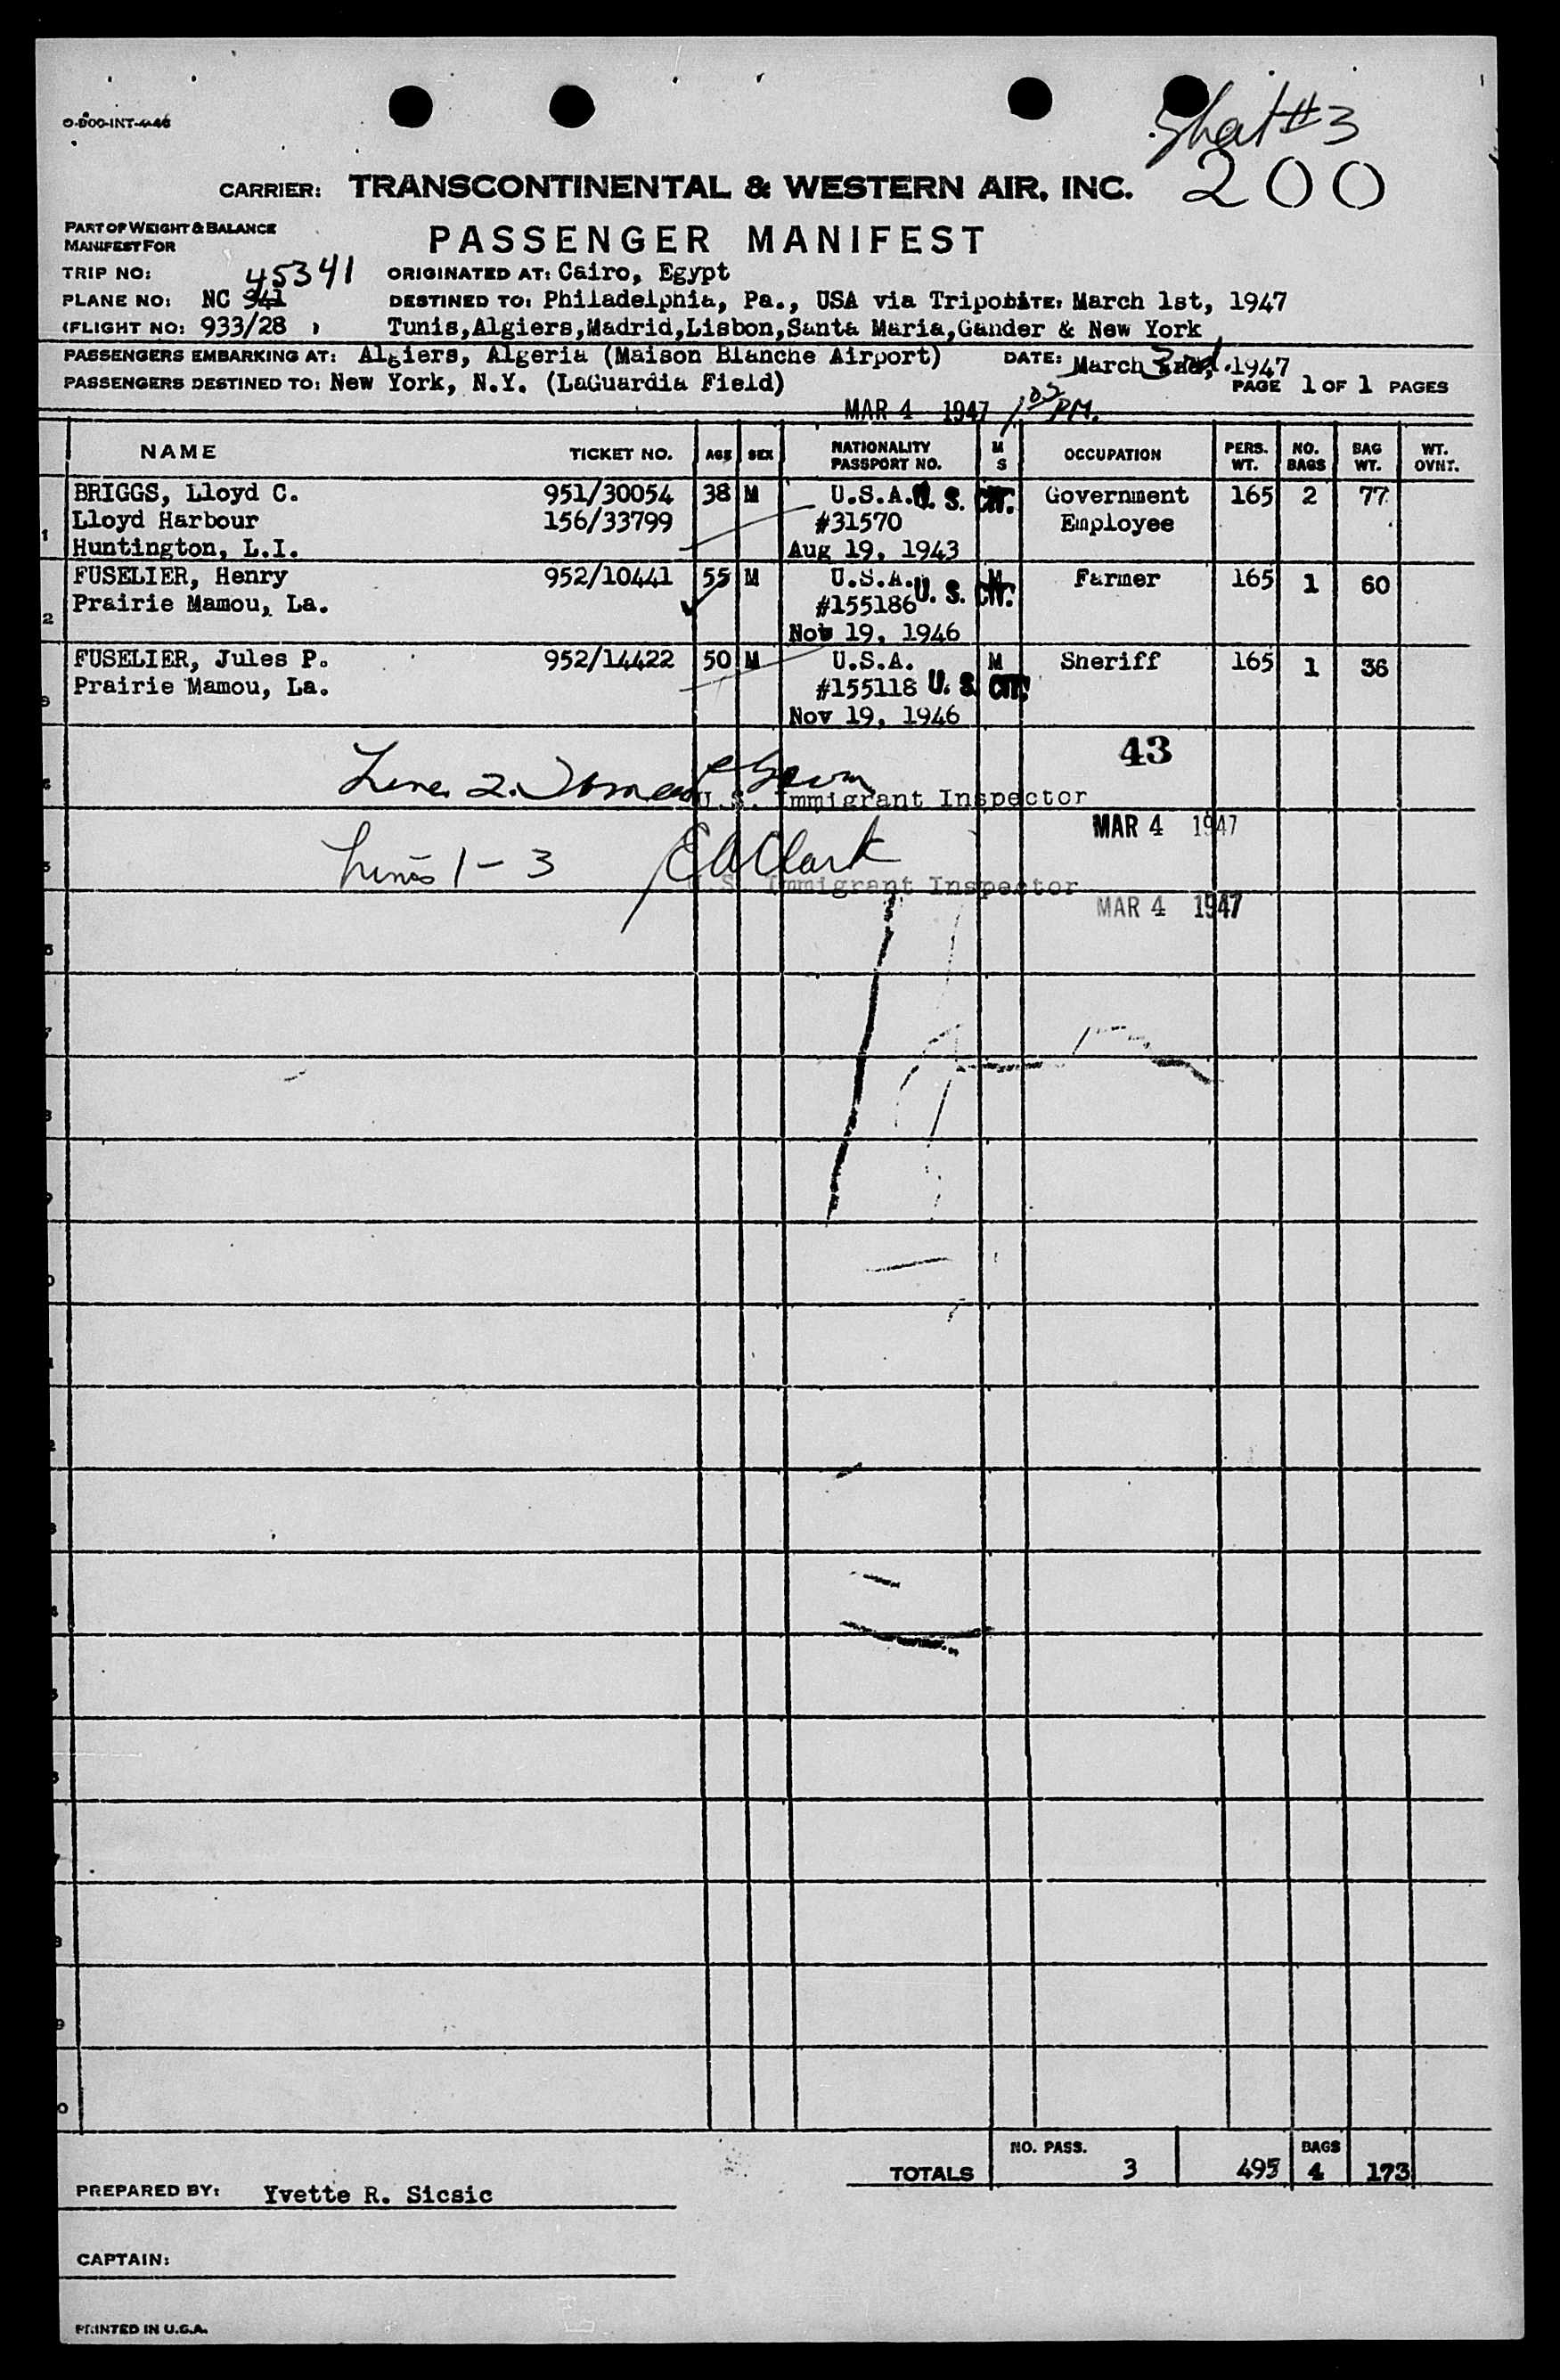 O-DOO-INT-4-46
Sheet #3
200
CARRIER: TRANSCONTINENTAL & WESTERN AIR, INC.
PART OF WEIGHT & BALANCE
MANIFEST FOR
PASSENGER MANIFEST
TRIP NO: 45341 ORIGINATED AT: Cairo, Egypt
PLANE NO: NC 341 DESTINED TO: Philadelphia, Pa., USA via Tripoli DATE: March 1st, 1947
(FLIGHT NO: 933/28 ) Tunis,Algiers,Madrid,Lisbon,Santa Maria,Gander & New York
PASSENGERS EMBARKING AT: Algiers, Algeria (Maison Blanche Airport) DATE: March 3rd, 1947
PASSENGERS DESTINED TO: New York, N.Y. (LaGuardia Field) PAGE 1 OF 1 PAGES
MAR 4 1947 1:05 PM.
NAME TICKET NO. AGE SEX NATIONALITY PASSPORT NO. M S OCCUPATION PERS. WT. NO. BAGS BAG WT. WT. OVNT.
BRIGGS, Lloyd C. 951/30054 38 M U.S.A. U. S. CIT. Government 165 2 77
1 Lloyd Harbour 156/33799 #31570 Employee
Huntington, L.I. Aug 19, 1943
FUSELIER, Henry 952/10441 55 M U.S.A. M Farmer 165 1 60
2 Prairie Mamou, La. #155186 U. S. CIT.
Nov 19, 1946
FUSELIER, Jules P. 952/14422 50 M U.S.A. M Sheriff 165 1 36
3 Prairie Mamou, La. #155118 U. S. CIT.
Nov 19, 1946
43
Line 2.
U.S. Immigrant Inspector
MAR 4 1947
Lines 1-3 E A Clark
U.S. Immigrant Inspector
MAR 4 1947
NO. PASS. BAGS
TOTALS 3 495 4 173
PREPARED BY: Yvette R. Sicsic
CAPTAIN:
PRINTED IN U.S.A.